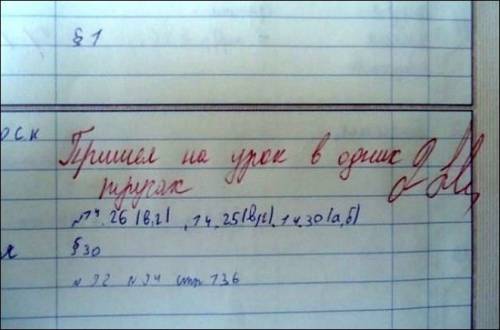 § 1
Пришел на урок в одних
трусах 2
№14.26 (в,г), 14.25(в,г), 14.30(а,б)
§ 30
№ 92 № 94 стр 136